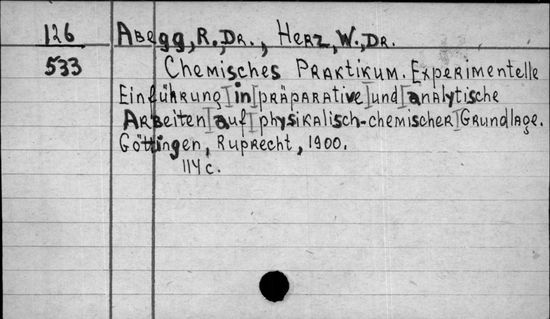 126 Abegg, R., Dr., Herz, W., Dr.
533 Chemisches Praktikum. Experimentelle
Einführung in präparative und analytische
Arbeiten auf physikalisch-chemischer Grundlage.
Göttingen, Ruprecht, 1900.
114 c.